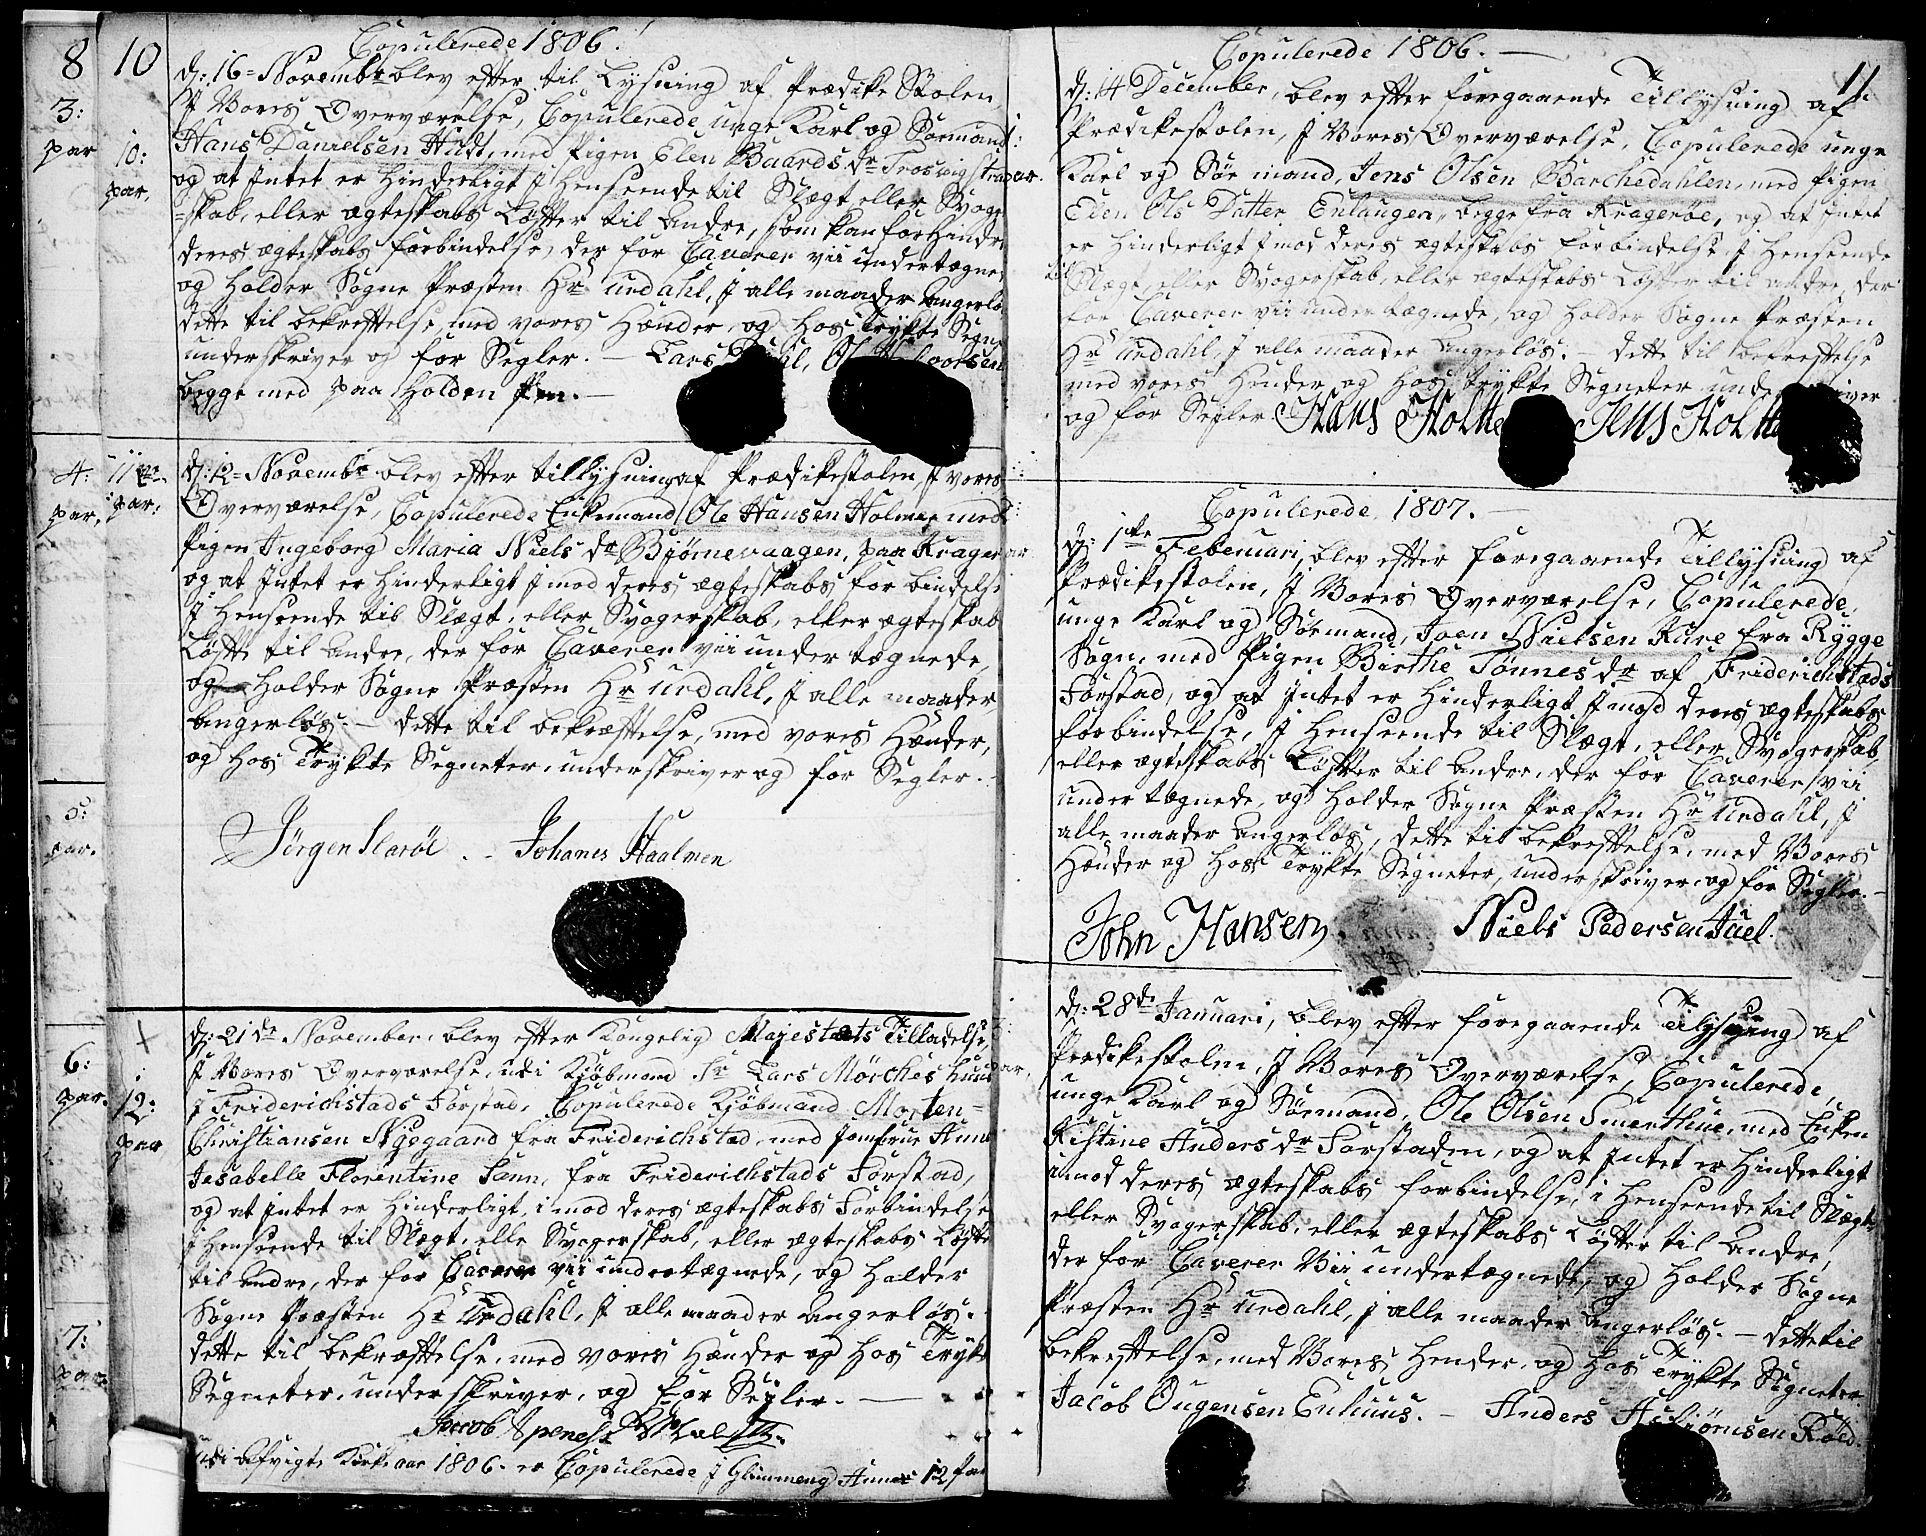 8
3:
par
4:
par.
5:
par.
6:
par.
7:
par.
10
Copulerede 1806.
10:
par.
d: 16= Novembr blev efter til Lysning af Prædike Stolen,
J Vores Overværelse, Copulerede unge Karl og Sørmand
Hans Danielsen Hudt, med Pigen Elen Baards dr Trosvigstrand
og at Intet er Hinderligt J Henseende til Slægt eller Svoger
=skab, eller ægteskabs Løfter til Andre, som kan forHindre
deres ægteskabs forbindelse, der for Caverer vii undertægnede
og Holder Sogne Præsten Hr Urdahl, J alle maader Angerløs
dette til bekreftelse, med vores Hænder, og Hos Trykte Segne
underskriver og for Segler. — Lars
begge med paa Holden Pen. —
11te
par:
d: 12= Novembr blev efter tillysning af Prædikestolen J vores
Overværelse, Copulerede Enkemand Ole Hansen Holmen med
Pigen Ingeborg Maria Niels dr Bjørnevaagen, paa Krager
og at Intet er Hinderligt J mod deres ægteskabs for bindelse
J Henseende til Slægt, eller Svogerskab, eller ægteskab
Løfte til Andre, der for Caverer vii under tægnede,
og Holder Sogne Præsten Hr Urdahl, J alle maader,
Angerløs. — dette til bekræftelse, med vores Hænder,
og Hos Trykte Segneter, underskriver og for Segler. —
Jörgen Slaröe .. Johanes Haalmen
12:
par
d: 21de November, blev efter Kongelig Majestæts Tilladelse,
J Vores Overværelse, udi Kjøbmand Sr Lars Mørches Huus
J Friderichstads Forstad, Copulerede Kjöbmand Morten=
Christiansen Nÿegaard fra Friderichstad, med Jomfrue Anne
Jesabelle Florentine Sann, fra Friderichstads Forstad,
og at Intet er Hinderligt, imod deres ægteskabs Forbindelse
J Henseende til Slægt, elle Svogerskab, eller ægteskabs Løfte
til Andre, der for Caverer vii undertægnede, og Holder
Sogne Præsten Hr Urdahl, J alle maader Angerløs.
dette til bekræftelse, med vores Hænder og Hos Trykte
Segneter, underskriver, og for Segler. —
Jacob
udi Afvigte Kirke aar 1806. er Copulerede J Glemmeng Annex 12 Par
11.
Copulerede 1806. —
d: 14 December, blev efter foregaaende Tillysning af
Prædikestolen, J Vores Overværelse, Copulerede unge
Karl og Sør mand, Jens Olsen Barchedahlen, med Pigen
Elen Ols Datter Enlaugen, begge fra Kragerøe, og at Intet
er Hinderligt J mod deres ægteskabs forbindelse J Henseende
til Slægt, eller Svogerskab, eller ægteskabs Løfter til Andre, der
for Caverer vii under tægnede, og Holder Sogne Præsten
Hr Urdahl, J alle maader Angerløs. — dette til bekreftelse
med vores Hender og Hos trykte Segneter underskriver
og for Segler Hans Holte Jens Holte
Copulerede 1807. —
d: 1ste Februari, blev efter foregaaende Tillysning af
Prædikestolen, J Vores Overværelse, Copulerede,
unge Karl og Sörmand, Joen Nielsen Kure fra Rÿgge
Sogn, med Pigen Birthe Tønnes dr af Friderichstads
Forstad, og at Intet er Hinderligt J mod deres ægteskabs
forbindelse, J Henseende til Slægt, eller Svogerskab,
eller ægteskabs Løfter til Andre, der for Caverer vii
under tægnede, og Holder Sogne Præsten Hr Urdahl, J
alle maader Angerløs, dette til bekreftelse, med Vores
Hænder og Hos Trykte Segneter, underskriver, og for Segler. —
John Hansen Niels Pedersen Juel.
d: 28de Januari, blev efter foregaaende Tilysning af
Prædikestolen, J Vores Overværelse, Copulerede,
unge Karl og Sörmand, Ole Olsen Smerthue, med Enken
Kistine Anders dr Forstaden, og at Intet er Hinderligt
imod deres ægteskabs forbindelse, i Henseende til Slægt,
eller Svogerskab, eller ægteskabs Løfter til Andre,
der for Caverer Vii undertægnede, og Holder Sogne
Præsten Hr Urdahl, J alle maader Angerløs. — dette til
bekreftelse, med Vores Hender, og Hos Trykte Segneter
Jacob Ougensen Enhuus. — Anders Asbiörnsen Röed.